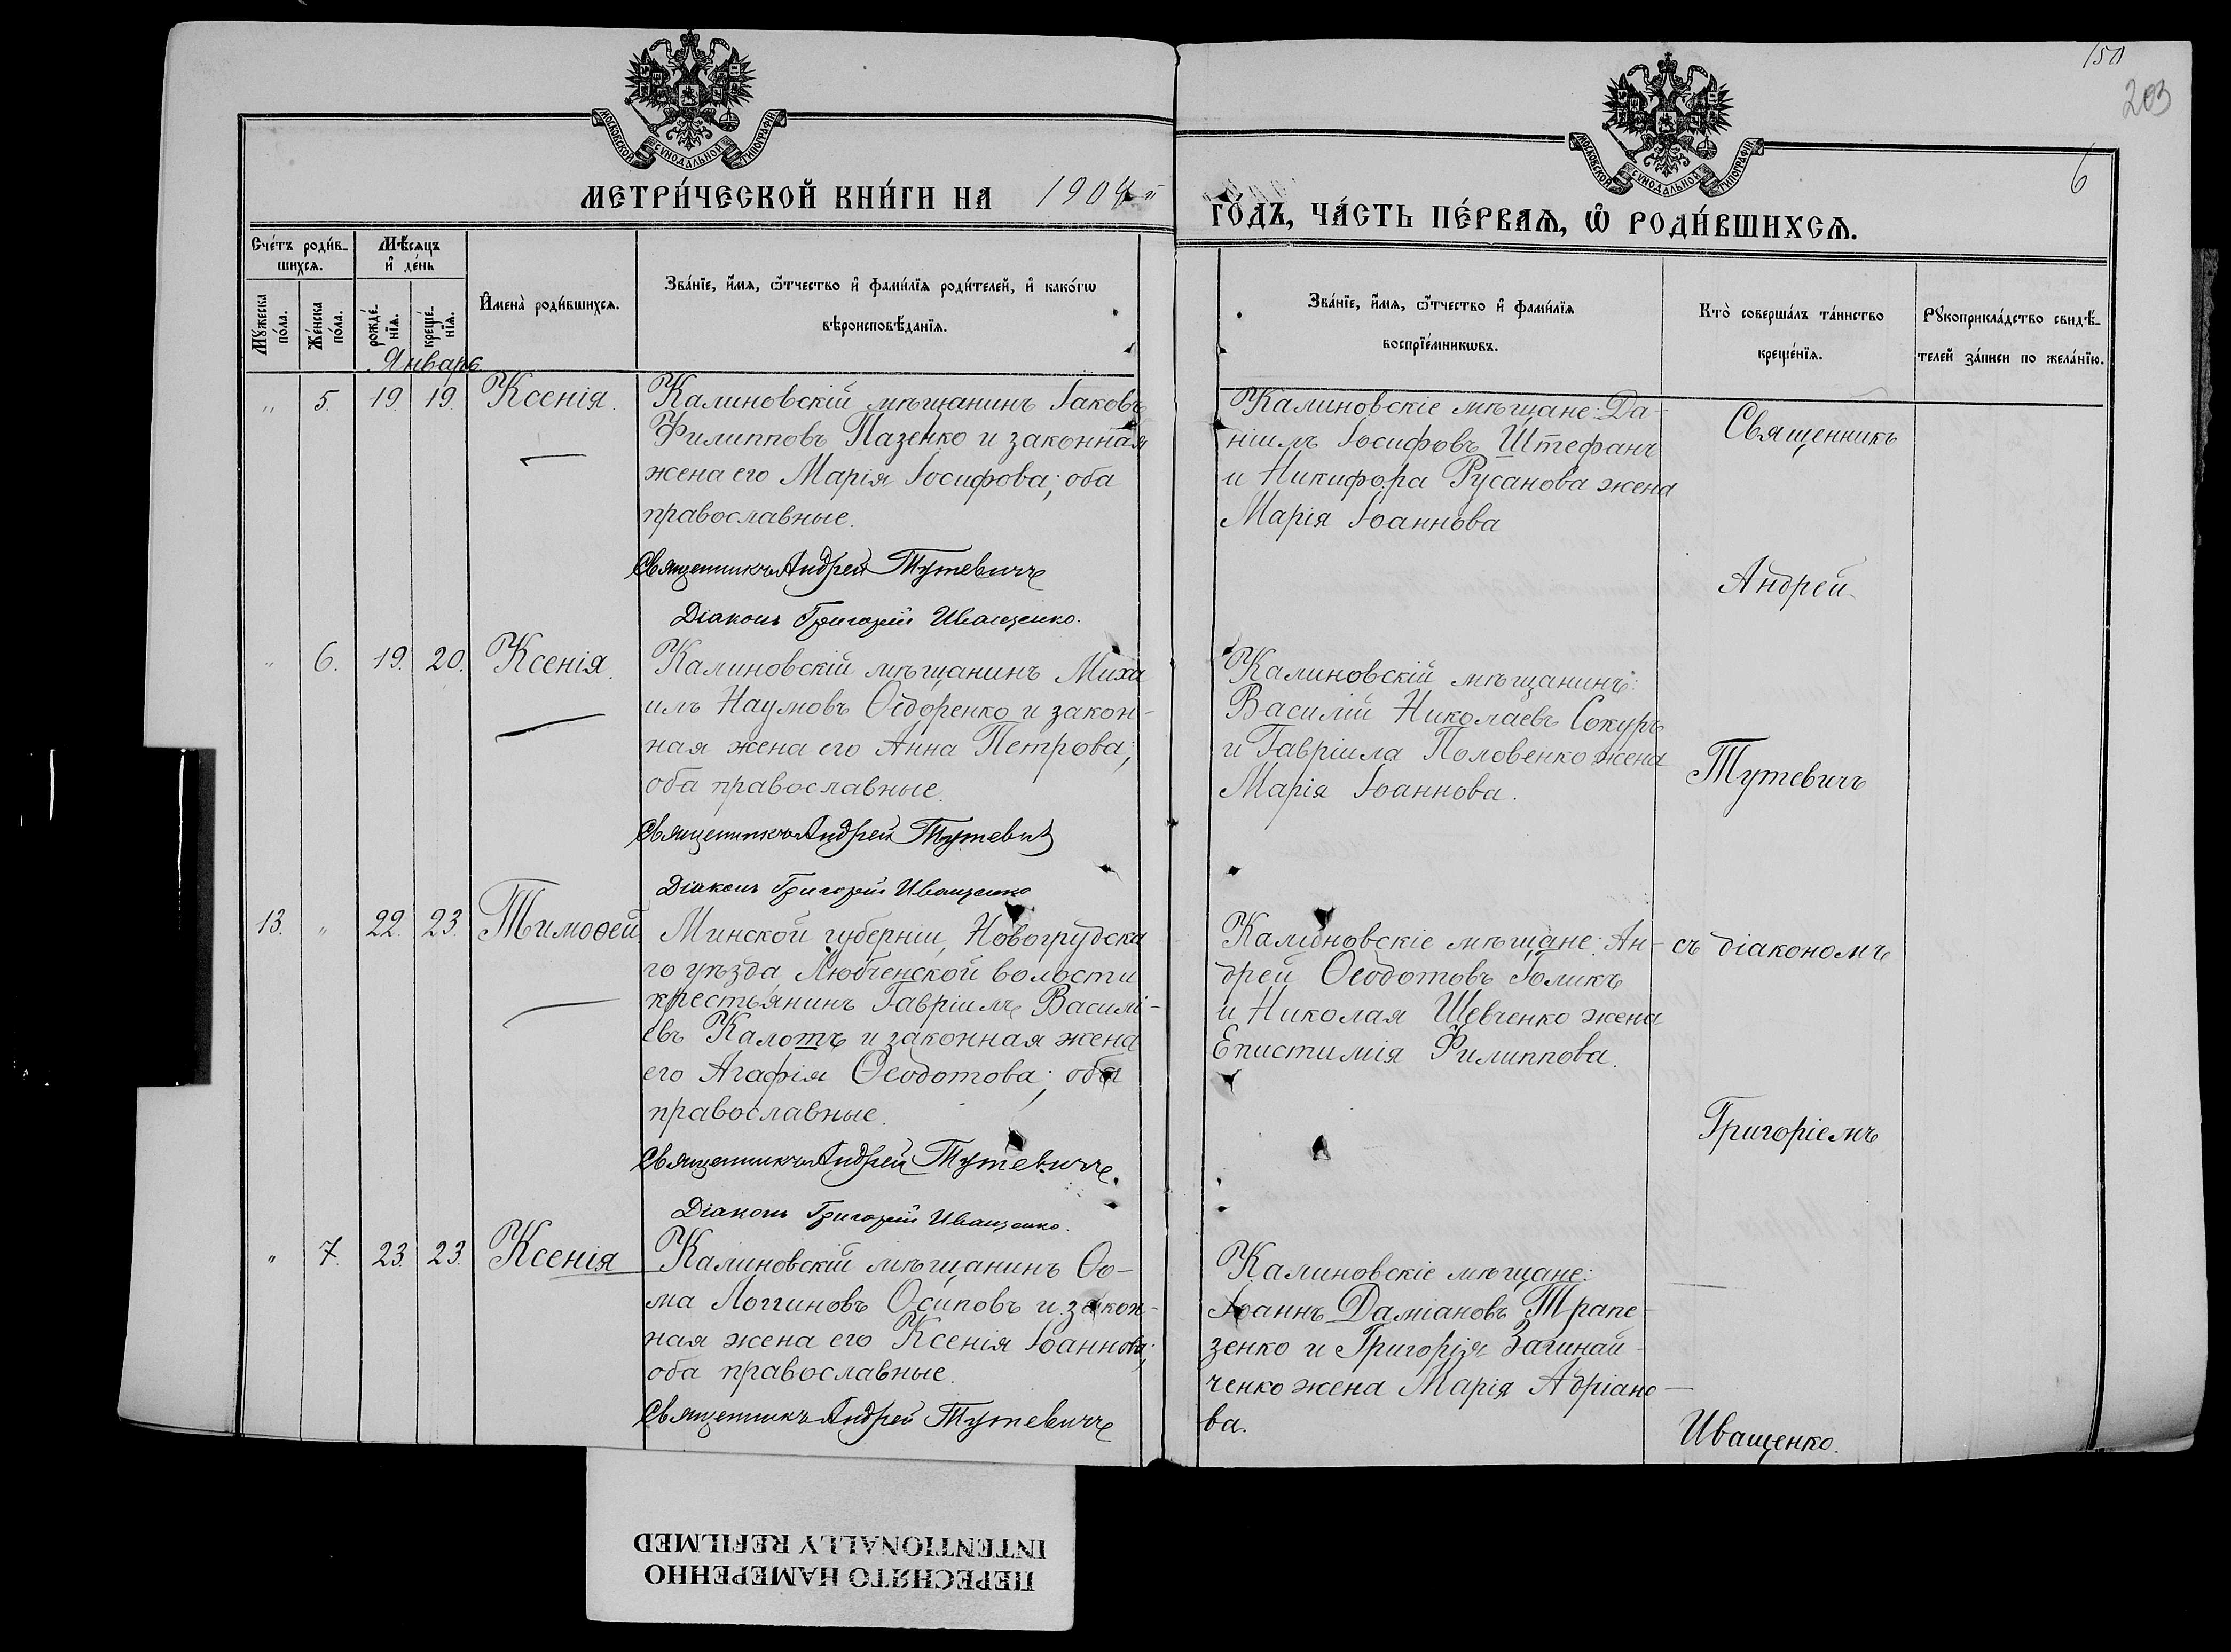 150
203
6
МОСКОВСКОЙ СУНОДАЛЬНОЙ ТИПОГРАФІИ
МОСКОВСКОЙ СУНОДАЛЬНОЙ ТИПОГРАФІИ
МЕТРИ́ЧЕСКОЙ КНИ́ГИ НА 1904й
ГО́ДЪ, ЧА́СТЬ ПЕ́РВАѦ, Ѡ РОДИ́ВШИХСѦ.
Сче́тъ роди́в-
шихсѧ.
Мꙋ́жеска
по́ла.
Же́нска
по́ла.
Мѣ́сѧцъ
и҆ де́нь
рожде́-
нїѧ.
креще́-
нїѧ.
И҆мена̀ роди́вшихсѧ.
Зва́нїе, и҆́мѧ, ѻ҆́тчество и҆ фами́лїѧ роди́телей, и҆ како́гѡ
вѣроисповѣ́данїѧ.
Зва́нїе, и҆́мѧ, ѻ҆́тчество и҆ фами́лїѧ
воспрїе́мникѡвъ.
Кто̀ соверша́лъ та́инство
креще́нїѧ.
Рꙋкоприкла́дство свидѣ́-
телей за́писи по жела́нїю.
Январь
" 5. 19. 19. Ксенія.
Калиновскій мѣщанинъ Іаковъ
Филипповъ Пазенко и законная
жена его Марія Іосифова; оба
православные.
Священникъ Андрей Тутевичъ
Діаконъ Григорій Иващенко.
Калиновскіе мѣщане: Да-
ніилъ Іосифовъ Штефанъ
и Никифора Русанова жена
Марія Іоаннова
" 6. 19. 20. Ксенія.
Калиновскій мѣщанинъ Миха
илъ Наумовъ Ѳедоренко и закон-
ная жена его Анна Петрова;
оба православные.
Священникъ Андрей Тутевич
Діаконъ Григорій Иващенко
Калиновскій мѣщанинъ:
Василій Николаевъ Сокуръ
и Гавріила Половенко жена
Марія Іоаннова.
13. " 22. 23. Тимоѳей.
Минской губерніи, Новогрудска
го уѣзда, Любченской волости
крестьянинъ Гавріилъ Василі-
евъ Калотъ и законная жена
его Агафія Ѳеодотова; оба
православные.
Священникъ Андрей Тутевичъ
Діаконъ Григорій Иващенко.
Калиновскіе мѣщане: Ан-
дрей Ѳеодотовъ Голикъ
и Николая Шевченко жена
Епистимія Филиппова.
" 7. 23. 23. Ксенія
Калиновскій мѣщанинъ Ѳо-
ма Логгиновъ Осиповъ и закон-
ная жена его Ксенія Іоаннова;
оба православные.
Священникъ Андрей Тутевичъ
Калиновскіе мѣщане:
Іоаннъ Даміановъ Трапе-
зенко и Григорія Загинай-
ченко жена Марія Адріано-
ва.
Священникъ
Андрей
Тутевичъ
съ діакономъ
Григоріемъ
Иващенко.
ПЕРЕСНЯТО НАМЕРЕННО
INTENTIONALLY REFILMED